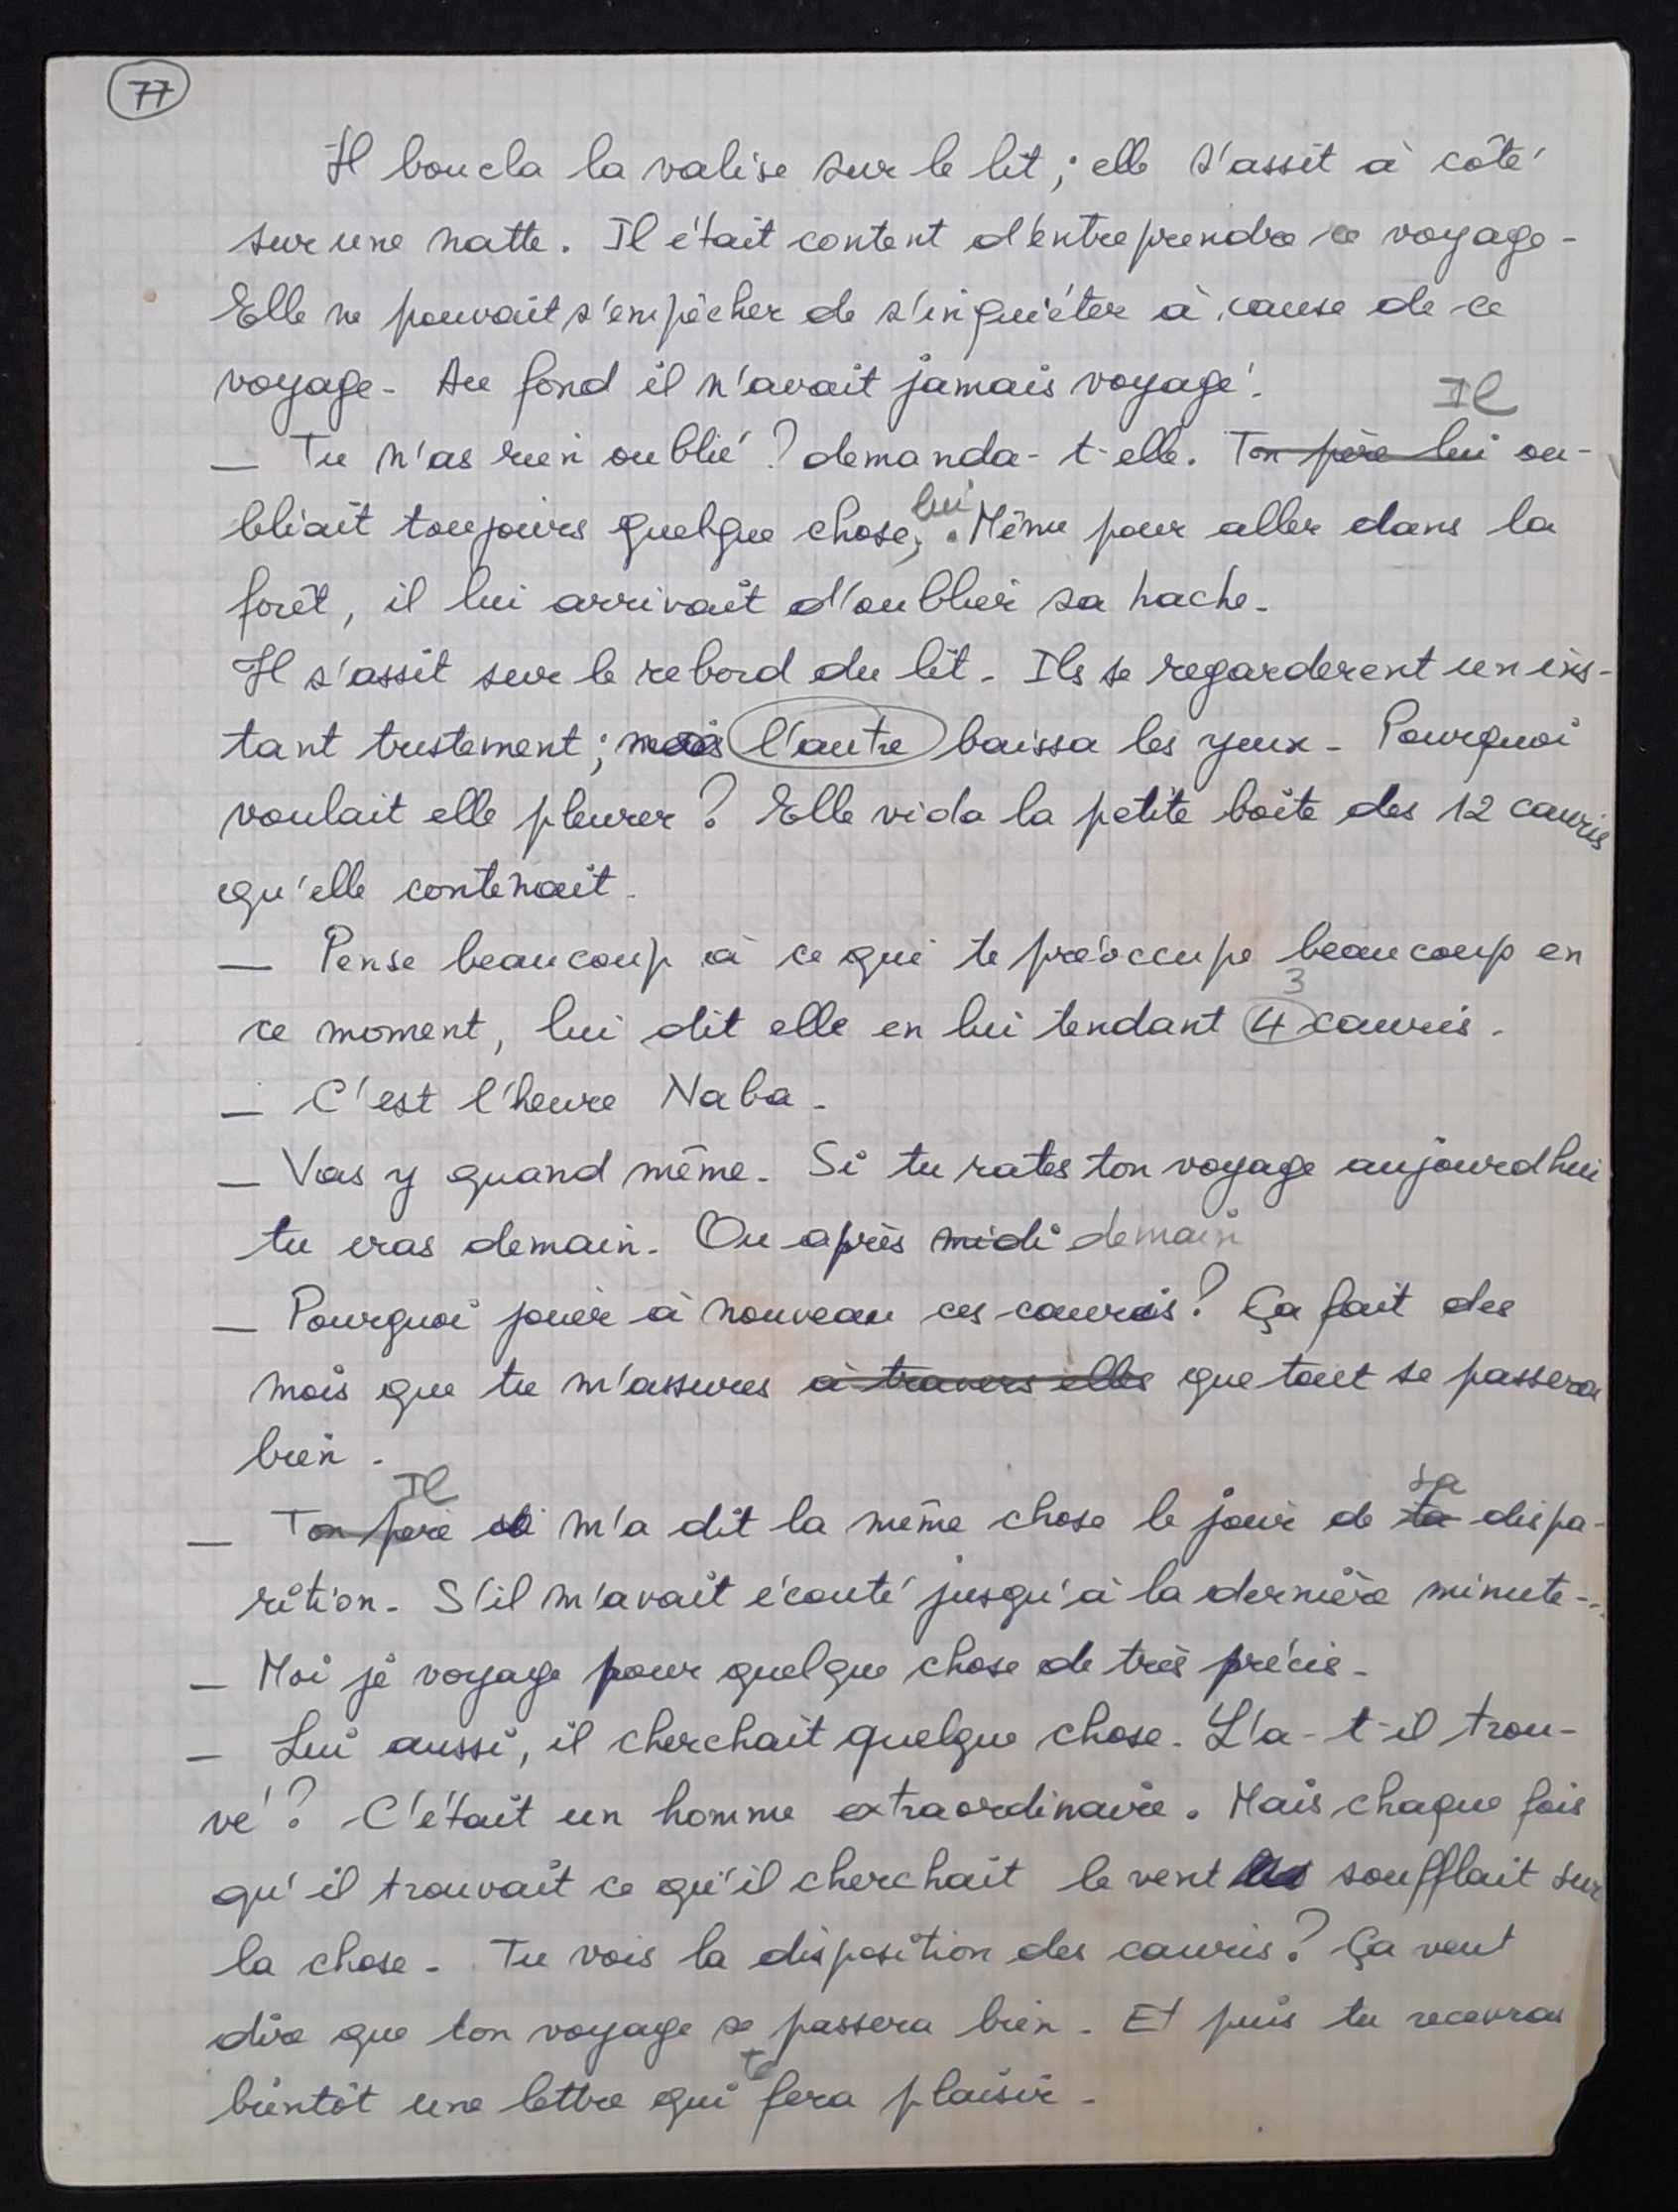 77
Il boucla la valise sur le lit ; elle s'assit à côté
sur une natte. Il était content d'entreprendre ce voyage -
Elle ne pouvait s'empêcher de s'inquiéter à cause de ce
voyage - Au fond il n'avait jamais voyagé.
Il
— Tu n'as rien oublié ? demanda-t-elle. Ton père lui ou-
bliait toujours quelque chose, lui. Même pour aller dans la
forêt, il lui arrivait d'oublier sa hache -
Il s'assit sur le rebord du lit - Ils se regarderent un ins-
tant tristement ; mais l'autre baissa les yeux - Pourquoi
voulait elle pleurer ? Elle vida la petite boîte des 12 cauris
qu'elle contenait.
— Pense beaucoup à ce qui te préoccupe beaucoup en
3
ce moment, lui dit elle en lui tendant 4 cauris.
— C'est l'heure Naba -
— Vas y quand même - Si tu rates ton voyage aujourd'hui
tu iras demain - Ou après midi demain
— Pourquoi jouer à nouveau ces cauris ? Ça fait des
mois que tu m'assures à travers elles que tout se passera
bien.
Il sa
— Ton père m'a dit la même chose le jour de ta dispa-
rition - S'il m'avait écouté jusqu'à la dernière minute...
— Moi je voyage pour quelque chose de très précis -
— Lui aussi, il cherchait quelque chose - L'a-t-il trou-
vé ? C'était un homme extraordinaire. Mais chaque fois
qu'il trouvait ce qu'il cherchait le vent soufflait sur
la chose - Tu vois la disposition des cauris ? Ça veut
dire que ton voyage se passera bien - Et puis tu recevras
te
bientôt une lettre qui fera plaisir -